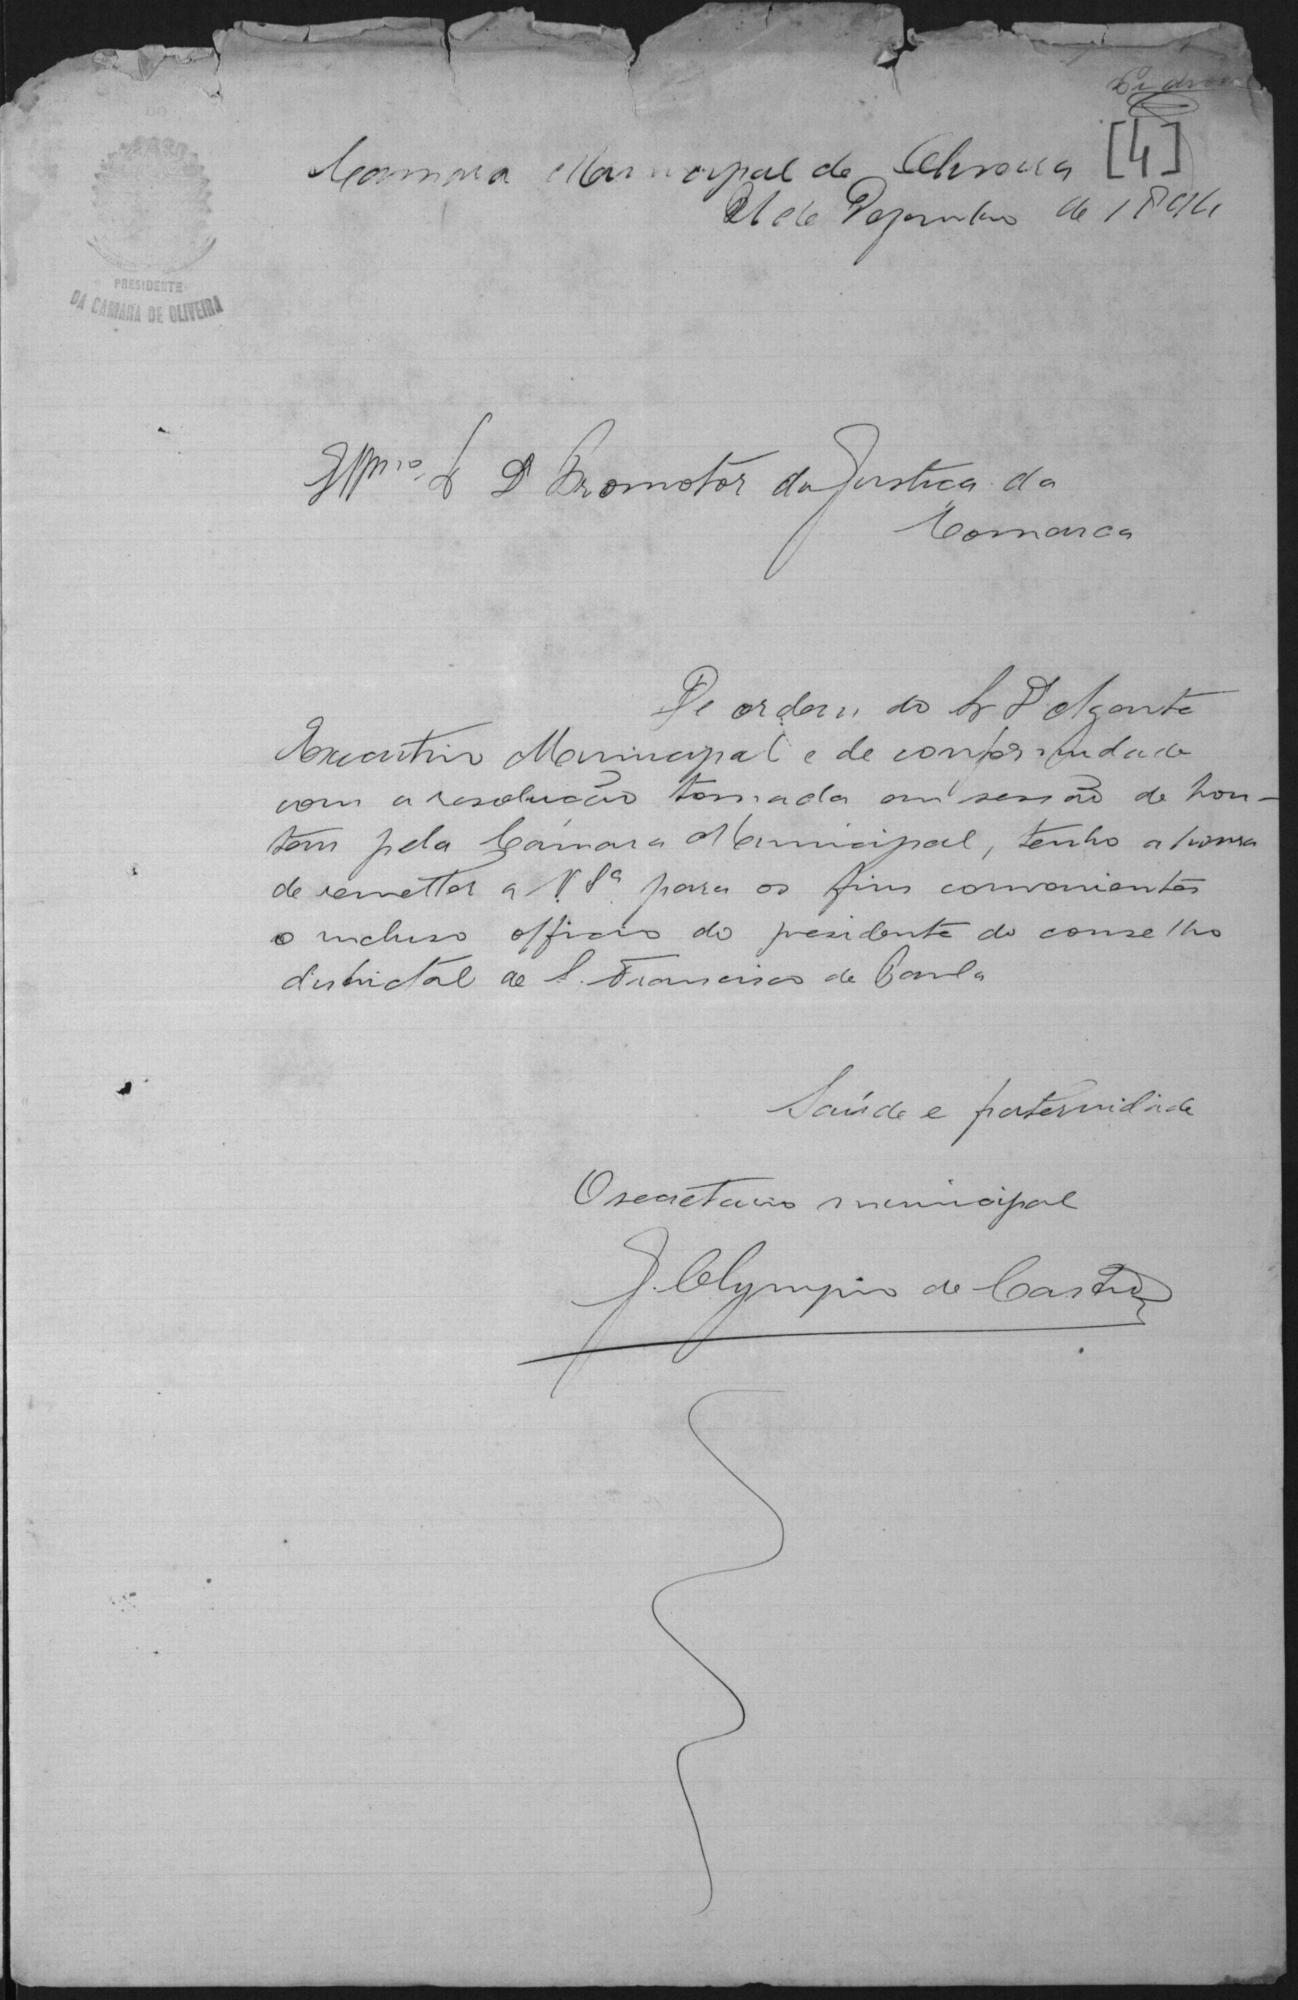 [4]
Camara Municipal de Oliveira
21 de Dezembro de 1894
PRESIDENTE
DA CAMARA DE OLIVEIRA
Illmo. Sr Dr Promotor da Justiça da
Comarca
De ordem do Sr Dr Agente
Executivo Municipal e de conformidade
com a resolução tomada em sessão de hon-
tem pela Câmara Municipal, tenho a honra
de remetter a V. Sª para os fins convenientes
o incluso officio do presidente do conselho
districtal de S. Francisco de Paula
Saúde e fraternidade
O secretario municipal
J. Olympio de Castro